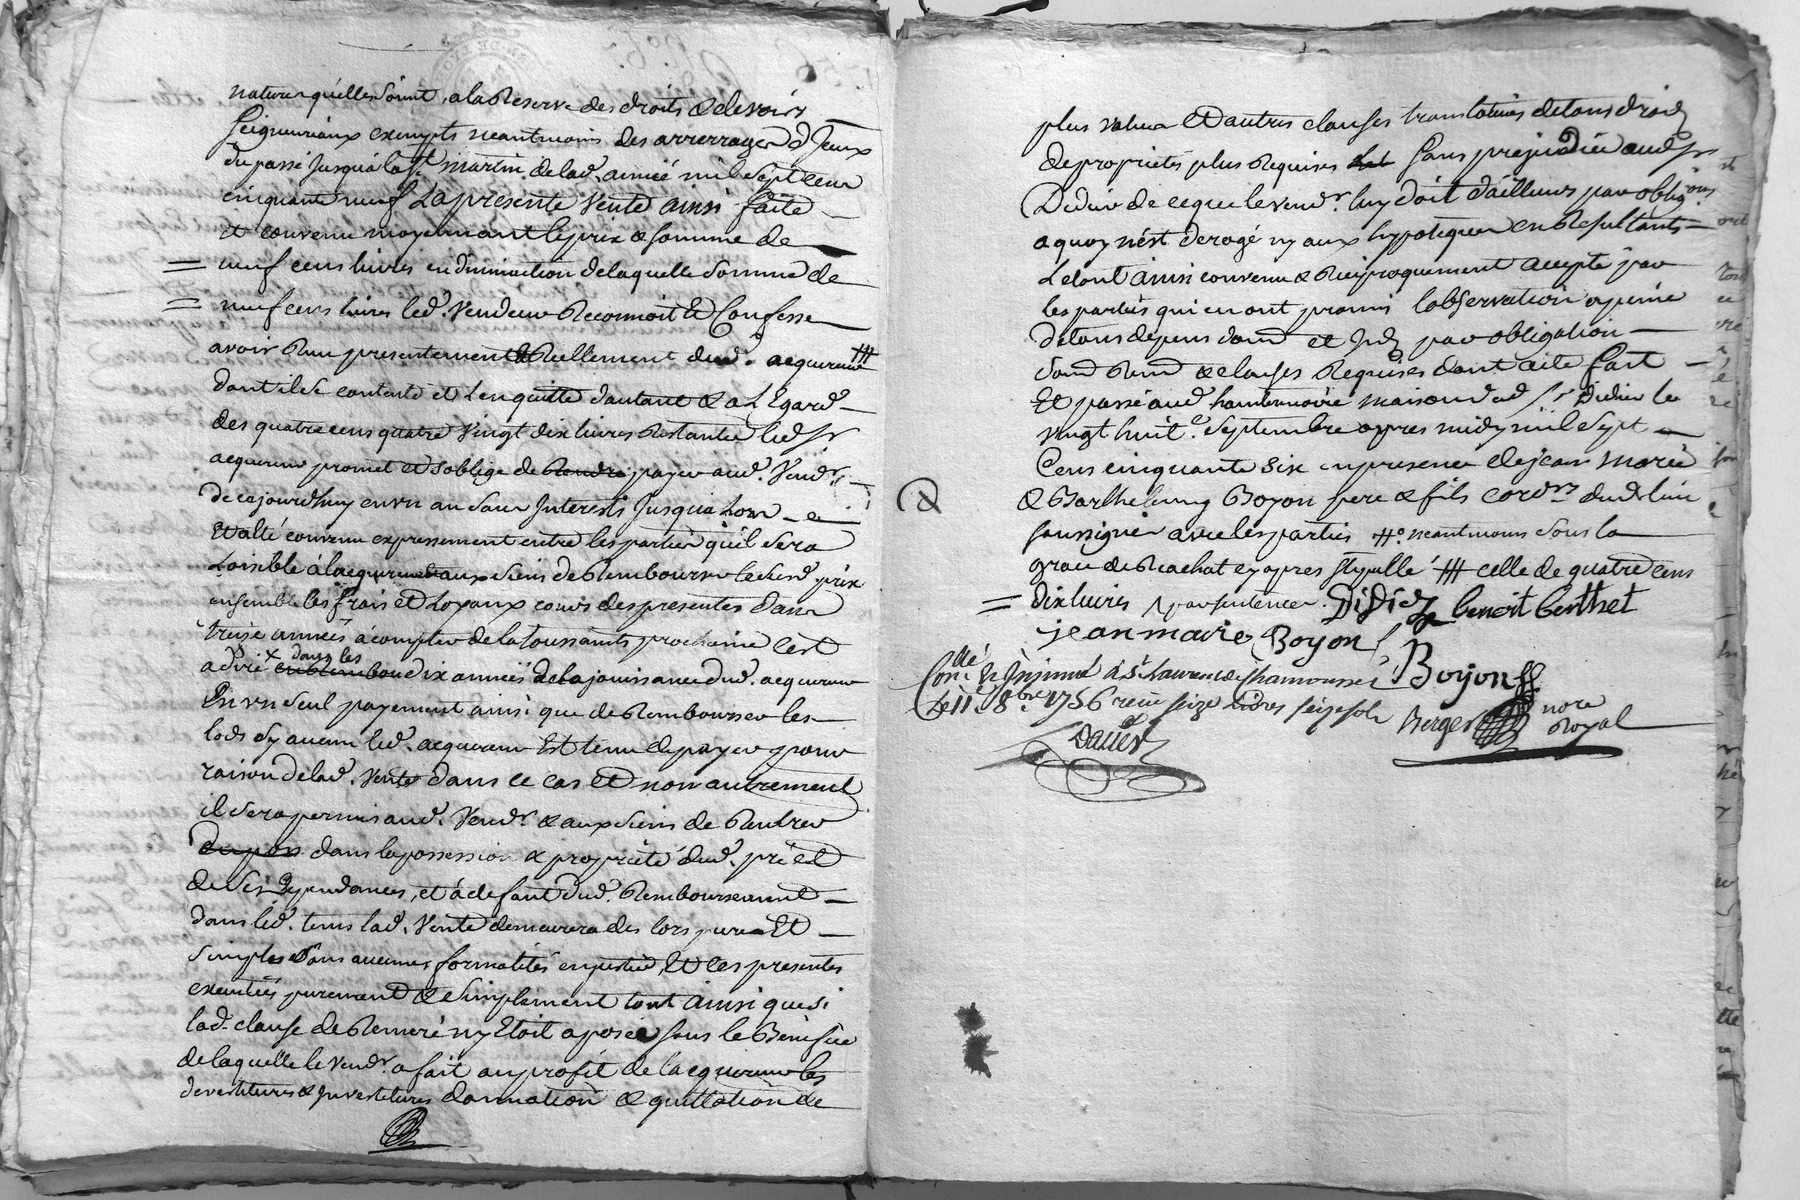 nature quelles Soint, a la Reserve des droits & devoirs
Seigneuriaux exempts neantmoins des arrerrages d'Iceux
du passé Jusqu'a la St martin de lad. année mil Sept cens
cinquante neuf La presente Vente ainsi faite
et convenu moyennant le prix & somme de
neuf cens livres en diminution de laquelle Somme de
neuf cens livres led. Vendeur Reconnoit Et Confesse
avoir Reçu presentement & Reellement dud. acquereur ##
dont il se contente et L'en quitte d'autant & a L'Egard
des quatre cens quatre Vingt dix livres Restantes led. Sr
acquereur promet et s'oblige de Rendre payer aud. Vendr.
de cejourdhuy en un an Sans Interests Jusqu'a Lors
Et a été convenu expressement entre les parties qu'il Sera
Loisible a l'acquereur aux Siens de Rembourser le Susd. prix
ensemble les frais et Loyaux couts des presentes dans
treise années a compter de la toussaints prochaine c'est
a dire dans les dix années de la jouissance dud. acquereur
En un Seul payement ainsi que de Rembourser les
lods Sy aucun led. acquereur Est tenu de payer pour
raison de lad. Vente dans ce cas et non autrement
il Sera permis aud. Vendr. & aux Siens de Rentrer
dans la possession & propriété dud. pré et
de Ses Dependances, et a defaut dud. Remboursement
dans led. tems lad. Vente demeurera des lors pure Et
Simple Sans aucunes formalités en justice, Et Les presentes
executées purement & Simplement tout ainsi que si
lad. clause de Remeré ny Etoit aposée sous le Benefice
de laquelle le Vendr. a fait au profit de l'acquereur les
devestitures & Investitures donnation & quittation de
plus value Et D'autres clauses translatives de tous droits
de proprietés plus Requises Sans prejudice aud. Sr
Didier de ce que le Vendr. luy doit d'ailleurs par obligons
a quoy n'est derogé ny aux hypoteques en Resultants
Le tout ainsi convenu & Reciproquement accepté par
les parties qui en ont promi l'observation a peine
de tous depens dom et Int par obligation
Soum Renon & clauses Requises dont acte fait
Et passé aud. maison dud. Sr Didier le
Vingt huit e. Septembre apres midy mil Sept
Cens cinquante Six en presence de jean marie
& Barthelemy Boyon pere & fils cordrs dud. lieu
soussignés avec les parties #° neantmoins Sous la
grace de Rachat cy apres Stipulle ## celle de quatre cens
dix livres
Didier benoit berthet
jean marie Boyon
Boyon
Conlé Et Insinué a St Laurent de chamousset
Le 11 e. 8bre 1756 reçu seize Livres seize sols
Berger nore
Royal